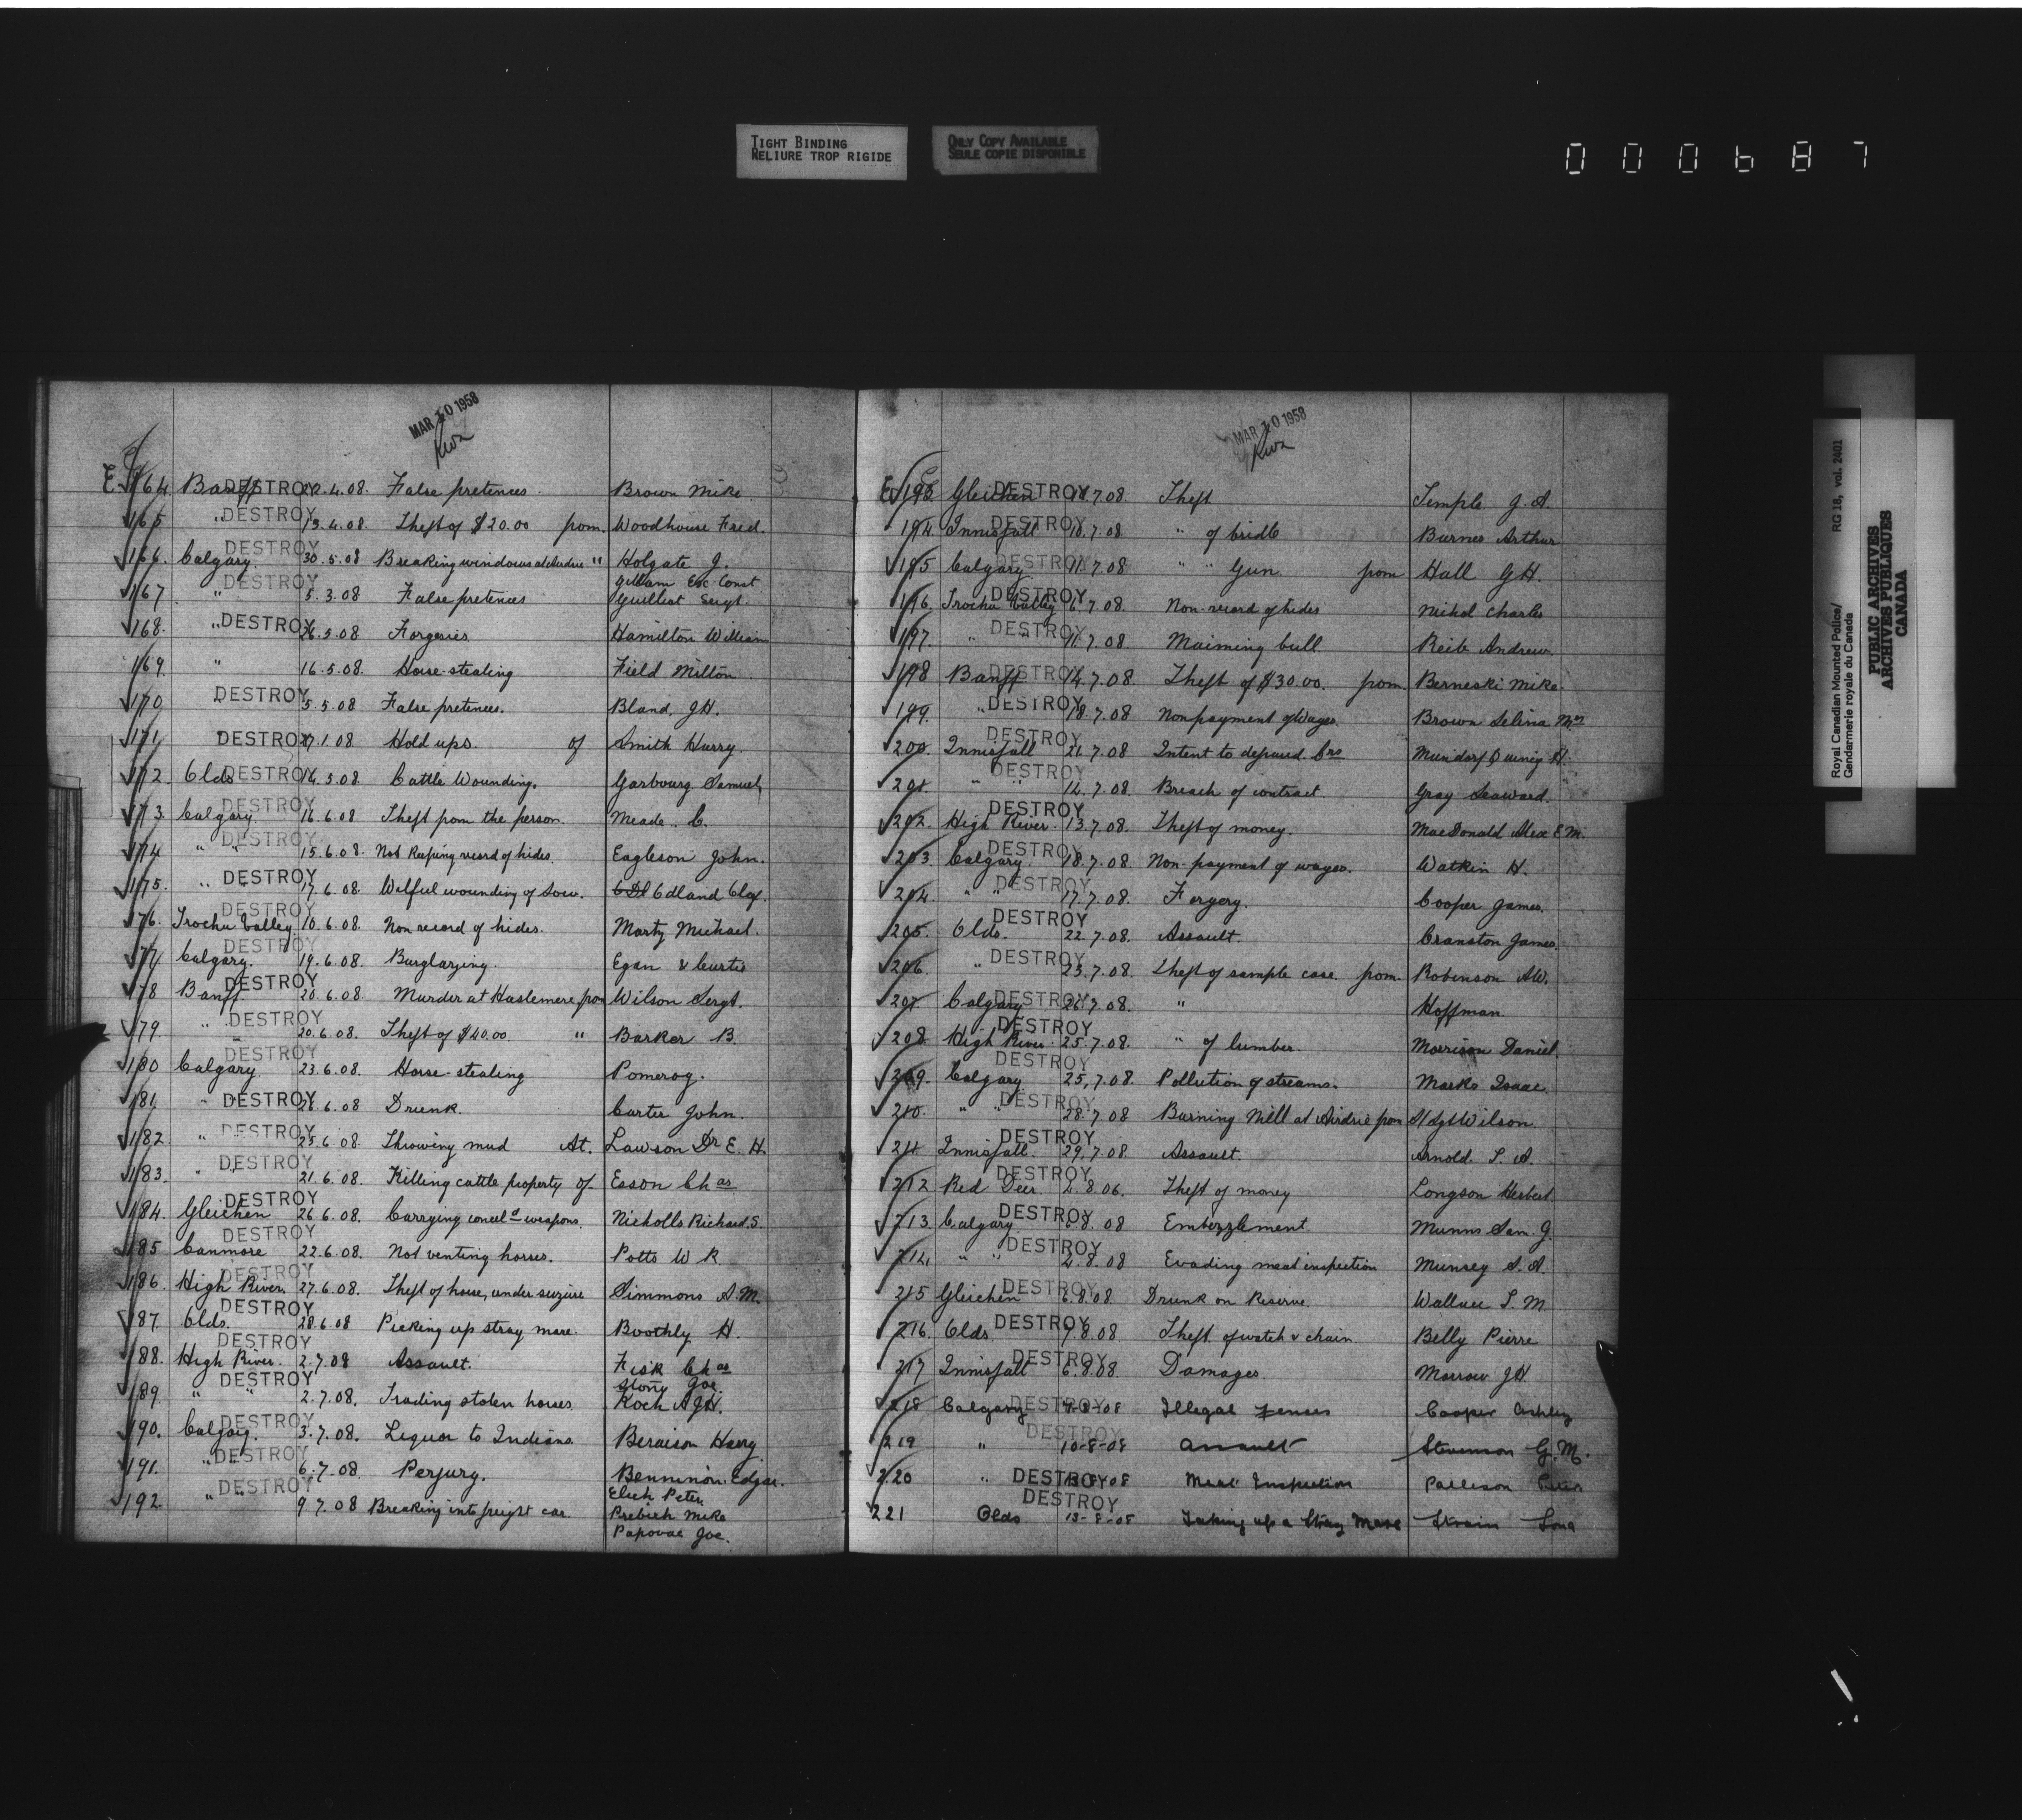 TIGHT BINDING
RELIURE TROP RIGIDE
ONLY COPY AVAILABLE
SEULE COPIE DISPONIBLE
000687
MAR 10 1958
E 164 Banff DESTROY .4.08. False pretences. Brown Mike.
165 " DESTROY 13.4.08. Theft of $20.00 from. Woodhouse Fred.
166. Calgary. DESTROY 30.5.08 Breaking windows at Airdrie " Holgate J.
167 " DESTROY 5.3.08 False pretences Gillam Ex Const
Guilliat Sergt.
168. " DESTROY 26.5.08 Forgeries Hamilton William
169. " 16.5.08 Horse-stealing Field Milton.
170 DESTROY 5.5.08 False pretences. Bland, J.H.
171 " DESTROY .1.08 Hold ups. of Smith Harry.
172. Olds DESTROY 14.5.08. Cattle Wounding. Garbourg Samuel
173. Calgary. DESTROY 16.6.08 Theft from the person. Meade. C.
174 " " DESTROY 15.6.08. Not Keeping record of hides. Eagleson John.
175. " DESTROY 17.6.08. Wilful wounding of Sow. Edland Olaf.
176. Trochu Valley. DESTROY 10.6.08. Non record of hides. Marty Michael.
177 Calgary. DESTROY 19.6.08. Burglarying. Egan & Curtis
178 Banff DESTROY 20.6.08. Murder at Haslemere, from Wilson Sergt.
179 " " DESTROY 20.6.08. Theft of $40.00 " Barker B.
180 Calgary DESTROY 23.6.08. Horse-stealing Pomeroy.
181 " " DESTROY .6.08 Drunk. Carter John.
182 " DESTROY 25.6.08 Throwing mud At. Lawson Dr E. H.
183. " " DESTROY 21.6.08. Killing cattle property of Esson Chas
184. Gleichen DESTROY 26.6.08. Carrying conceld weapons. Nicholls Richard.S.
185 Canmore DESTROY 22.6.08. Not venting horses. Potts W R
186. High River. DESTROY 27.6.08. Theft of horse, under seizure Simmons A.M.
187. Olds. DESTROY 28.6.08 Picking up stray mare. Boothly H.
188. High River. DESTROY 2.7.08 Assault. Fisk Chas
189 " " DESTROY 2.7.08. Trading stolen horses. Stony Joe.
Koch A.J.H.
190. Calgary. DESTROY 3.7.08. Liquor to Indians. Beraison Harry
191. " " DESTROY 6.7.08. Perjury. Benninon Edgar.
192. " " DESTROY 9.7.08 Breaking into freight car Elich Peter
Prebich Mike
Papovac Joe.
MAR 10 1958
E 193. Gleichen DESTROY .7.08. Theft. Temple J. A.
194 Innisfail DESTROY 10.7.08. " of bridle Burnes Arthur
195 Calgary DESTROY 11.7.08 " " Gun. from Hall G.H.
196. Trochu Valley DESTROY 6.7.08. Non-record of hides Nickol Charles
197. " DESTROY 11.7.08 Maiming bull Reib Andrew.
198 Banff DESTROY 14.7.08. Theft of $30.00. from. Berneski Mike.
199. " DESTROY 18.7.08 Nonpayment of Wages. Brown Selina Mrs
200. Innisfail DESTROY 21.7.08 Intent to defraud Crs H.
201. " " DESTROY 14.7.08 Breach of contract. Gray Seaward.
202. High River. DESTROY 13.7.08. Theft of money. MacDonald Alex E.M.
203. Calgary. DESTROY 18.7.08. Non-payment of wages. Watkin H.
204. " " DESTROY 17.7.08. Forgery. Cooper James.
205. Olds. DESTROY 22.7.08. Assault. Cranston James.
206. " DESTROY 23.7.08. Theft of sample case. from. Robinson A.W.
207 Calgary DESTROY 26.7.08. " Hoffman
208 High River. DESTROY 25.7.08. " of lumber. Morrison Daniel.
209. Calgary DESTROY 25.7.08. Pollution of streams. Marks Isaac
210. " " DESTROY 28.7.08 Burning Mill at Airdrie from S/Sgt Wilson.
211 Innisfail. DESTROY 29.7.08. Assault. Arnold. S. A.
212 Red Deer. DESTROY 2.8.06. Theft of money Longson Herbert
213. Calgary DESTROY 6.8.08 Embezzlement. Munns Sam. G.
214 " " DESTROY 2.8.08 Evading meat inspection Munsey S. A.
215 Gleichen DESTROY 6.8.08 Drunk on Reserve. Wallace S. M
216. Olds. DESTROY 7.8.08 Theft of watch & chain Belly Pierre
217 Innisfail DESTROY 6.8.08 Damages Morrow J.H
218 Calgary DESTROY -8-08 Illegal Fences Cooper Ashley
219 " DESTROY 10-8-08 Assault Stevenson G. M.
220 " DESTROY -08 Meat Inspection Pattison
221 Olds DESTROY 13-8-08 Taking up a Stray Mare Strain
Royal Canadian Mounted Police/ RG 18, vol. 2401
Gendarmerie royale du Canada
PUBLIC ARCHIVES
ARCHIVES PUBLIQUES
CANADA